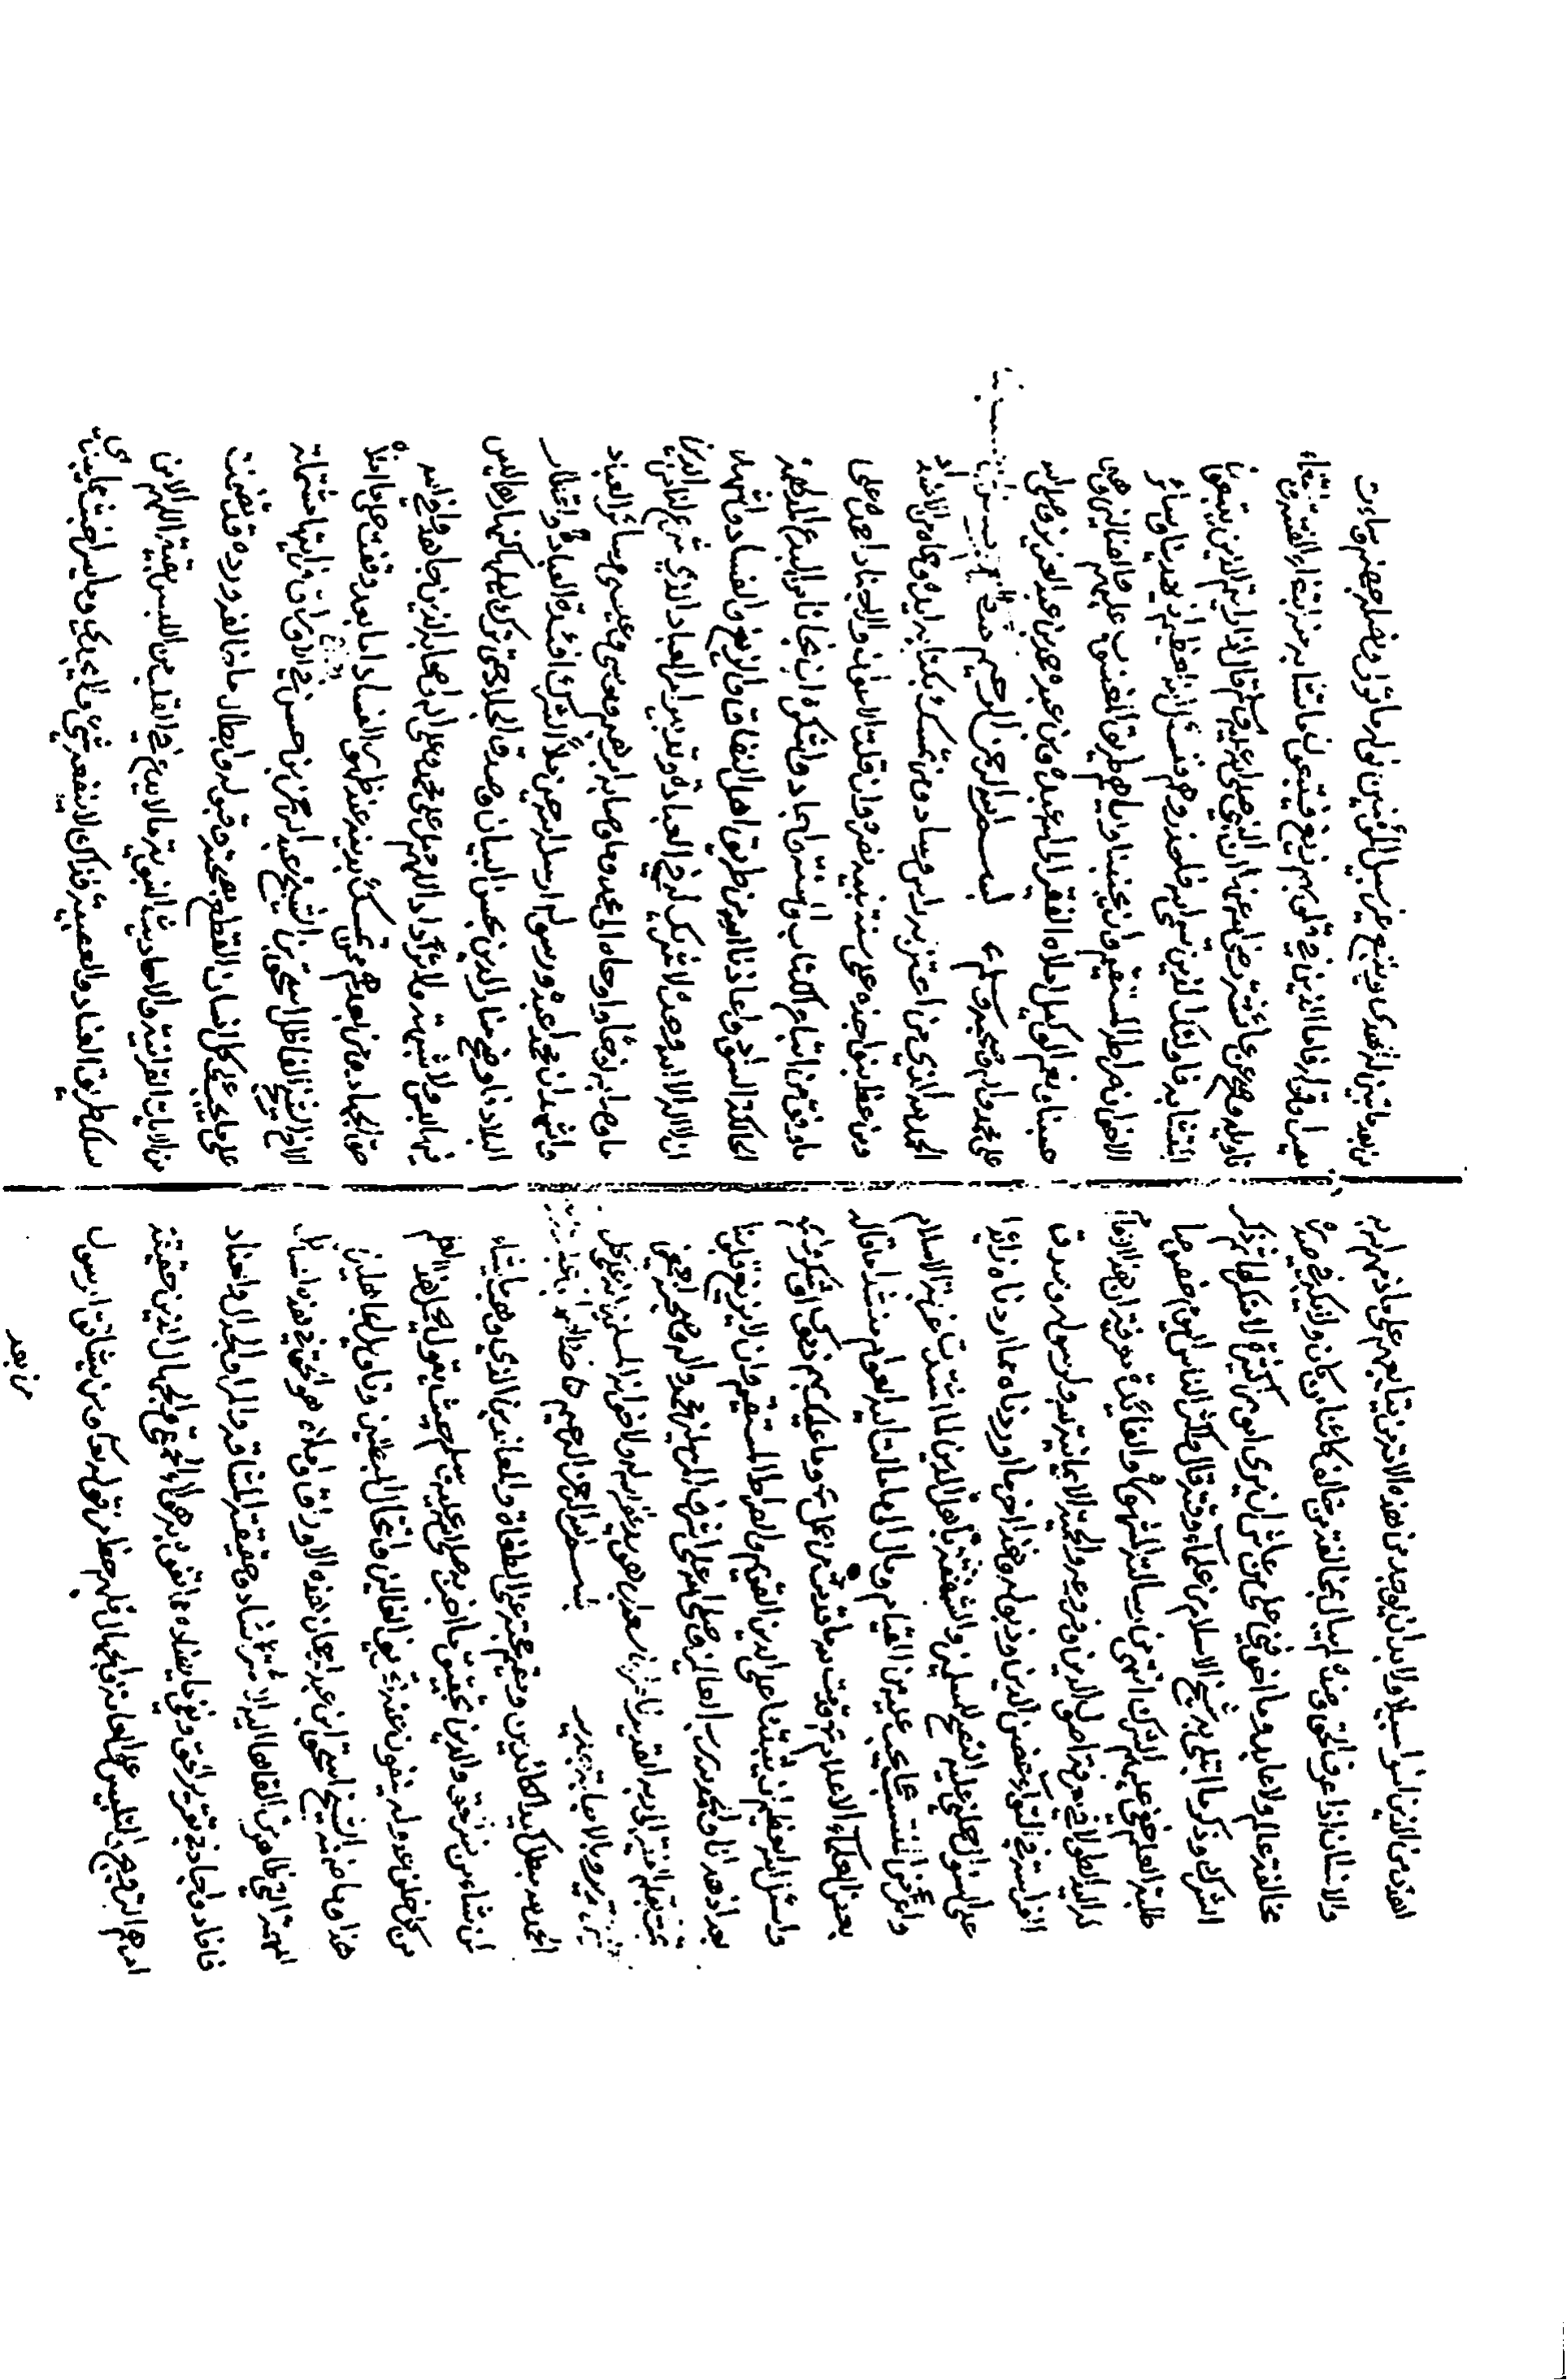 من الذين امنوا سبيلا ولا بد ان يوجد من هذه الامة من يتابعهم على ما ذمهم الله به
والانسان اذا عرف الحق وضده لم يبال بمخالفة من خالفه كائنا من كان ولا يكبر في صدره
مخالفة عالم ولا عابد وما اخوفني على من عاش ان يرى امورا كثيرة لا منكر لها
الشرك وذكر ما ابتلي به شيخ الاسلام من علماء وقته قال واكثر الناس اليوم خصوصا
طلبة العلم خفي عليهم الشرك انتهى من رسالته المشهورة والفائدة معرفة ان هذا
الطولى في معرفة اصول الدين وفروعه والحمية الايمانية لله ولرسوله وصدق
الفراسة في التواء بعض الذين وذبوله وهذا اخر ما اوردناه مما اردناه
على السؤال حملني عليه النصح للمسلمين والشفقة باهل الدين لما اشتدت غربة الاسلام
واعرض المنتسب عما يجب عليه من القيام ومال الى ما مالت اليه العوام منشدا ما قاله
بعض الحكماء الاعلام قدمت من عمل وما عليك بهم ذموك او شكروا
واسئل الله العظيم ان يثبتنا على الدين القويم والصراط المستقيم وان لا يزيغ قلوبنا
بعد اذ هدانا والحمد لله رب العالمين وصلى الله على اشرف المرسلين محمد واله وصحبه اجمعين
تمت بقلم الفقير الى الله القدير غفر الله له ولاخوانه المسلمين
بسم الله الرحمن الرحيم
الحمد لله مبطل كيد الكائدين ومقيم حجته على الطغاة والمعاندين الذي وهب ما شاء
لمن شاء من شرعه والدين بتحقيق ما اخبر به صلى الله عليه وسلم حيث يقول يحمل هذا العلم
من كل خلف عدوله ينفون عنه تحريف الغالين وانتحال المبطلين وتاويل الجاهلين
هذا وما ضمنه الشيخ اسحق ابن عبد الرحمن هذه الاوراق واملاه هو الحق في هذه المسائل
المهمة التي ظاهر من القاها اليه انه غير مسترشد وحقيقته المشاقة والمراء والجدال والعناد
فافاد واجاد في تقرير الحق ونفي ما يضاده هؤلاء الحمقى والجهال الذين حقيقة
امرهم الترويج والتلبيس على العامة والجهال فلهم حظ من قوله تعالى ومن يشاقق الرسول
من بعد
من بعد ما تبين له الهدى ويتبع غير سبيل المؤمنين نوله ما تولى ونصله جهنم وساءت
مصيرا وقوله فاما الذين في قلوبهم زيغ فيتبعون ما تشابه منه ابتغاء الفتنة وابتغاء
تاويله وصح عن عائشة رضي الله عنها ان النبي صلى الله عليه وسلم قال اذا رايتم الذين يتبعون
المتشابه فاولئك الذين سمى الله فاحذروهم فنسأل الله العظيم ان يهدينا وسائر
الاخوان صراطه المستقيم وان يجنبنا واياهم طريق المغضوب عليهم والضالين وهو
حسبنا ونعم الوكيل املاه الفقير الى الله عبده وابن عبده محمد بن عبد العزيز وصلى الله
على محمد واله وصحبه وسلم بسم الله الرحمن الرحيم
الحمد لله الذي من اعتز به ساد ومن تمسك بكتابه
ومن عظ بنواجذه على سنة نبيه ظفر وان قلت الاعوان والاجناد احمده على
ما وفق من اتباع الكتاب والسنة واجاد واشكره ان نجانا من البدع المدلهمة
الحالكة السواد واعاذنا الله من طريق اهل النفاق والزيغ والفساد واشهد
ان لا اله الا الله وحده لا شريك له في العبادة الذي شرع لنا من الدين
ما وصى به نوحا وما اوحاه الى محمد وما وصا به ابرهيم وموسى وعيسى وسائر العباد
واشهد ان محمدا عبده ورسوله ارسله حين ملأ الشرك افئدة العباد واقطار
البلاد فاوضح منار الدين بمحض البيان وصدق الجلاد حتى ترك ليلها كنهارها ليس
فيه التباس ولا شبهة ولا ترداد اللهم صل على محمد وعلى اله واصحابه الذين جاهدوا في الله
حق الجهاد ومن بعدهم ممن تمسك بدينه عند ظهور الفساد اما بعد وقفت على ما املاه
الاخ الشيخ الفاضل اسحق بن الشيخ عبد الرحمن بن حسن في الاوراق فرايتها مشتملة
على ما يجب على كل انسان القطع بصحته وقبوله وابطال ما خالفه ورده وقد تضمنت
من الايات القرانية والاحاديث النبوية ما لا يدع في القلب من اللبس بقية اللهم الا من
سلك طريق العناد والعصبية فذاك لا ينفعه شيء